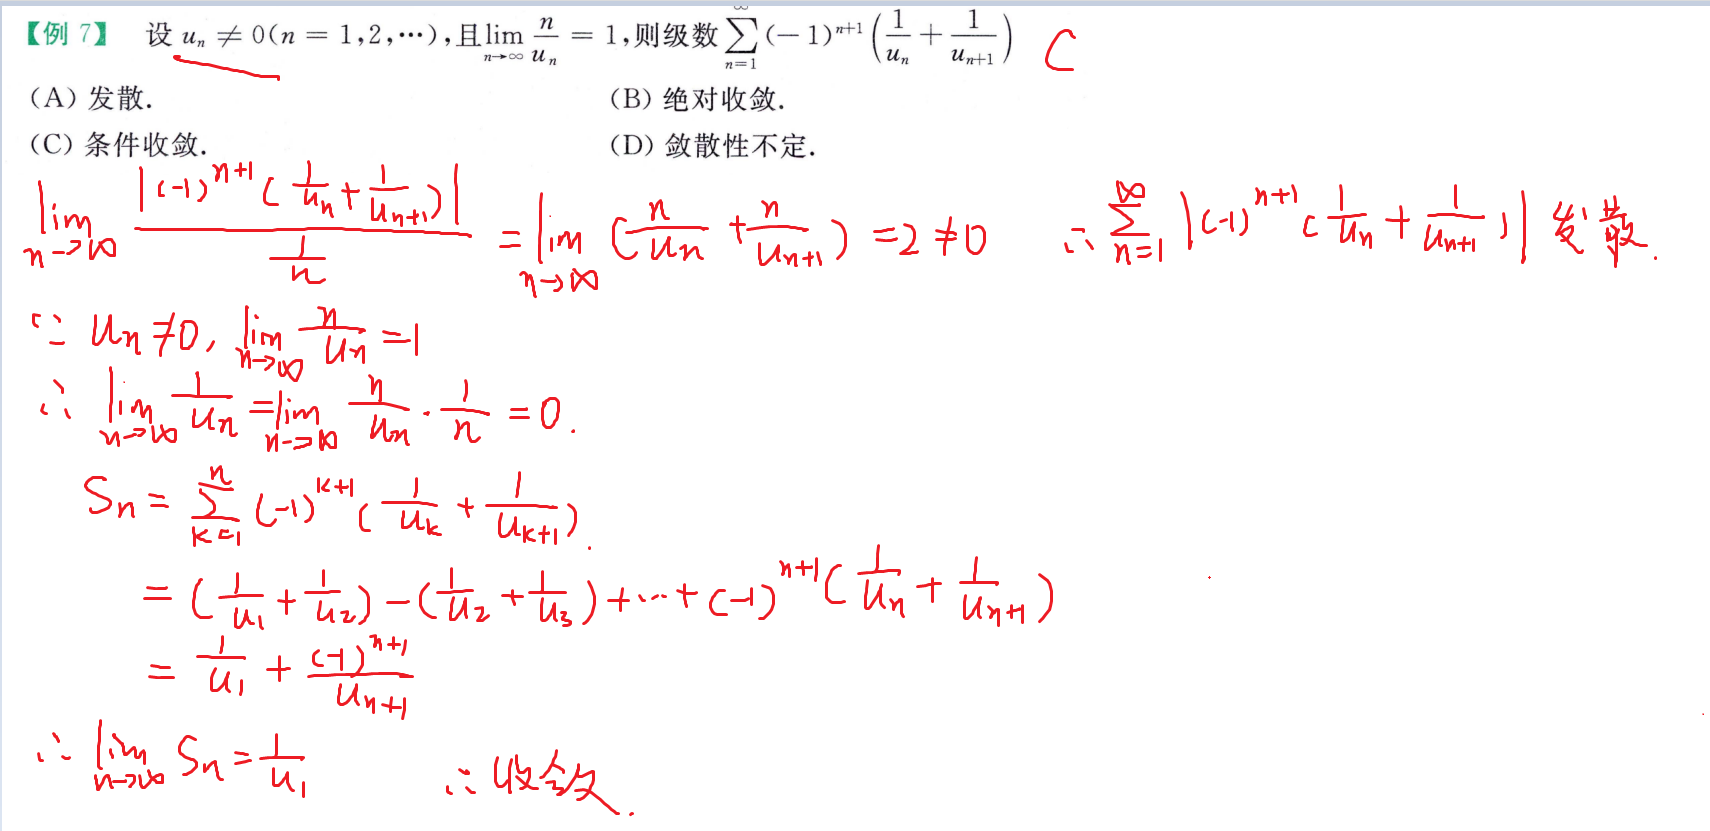 【例 7】 设 uₙ ≠ 0(n = 1,2,⋯),且 lim_{n→∞} n/uₙ = 1,则级数 ∑_{n=1}^{∞} (−1)ⁿ⁺¹ (1/uₙ + 1/uₙ₊₁) C
(A) 发散. (B) 绝对收敛.
(C) 条件收敛. (D) 敛散性不定.
lim_{n→∞} |(-1)ⁿ⁺¹(1/uₙ + 1/uₙ₊₁)| / (1/n) = lim_{n→∞} (n/uₙ + n/uₙ₊₁) = 2 ≠ 0 ∴ ∑_{n=1}^{∞} |(-1)ⁿ⁺¹(1/uₙ + 1/uₙ₊₁)| 发散.
∵ uₙ ≠ 0, lim_{n→∞} n/uₙ = 1
∴ lim_{n→∞} 1/uₙ = lim_{n→∞} n/uₙ · 1/n = 0.
Sₙ = ∑_{k=1}^{n} (-1)^{k+1} (1/u_k + 1/u_{k+1}).
= (1/u₁ + 1/u₂) − (1/u₂ + 1/u₃) + ⋯ + (-1)ⁿ⁺¹(1/uₙ + 1/uₙ₊₁)
= 1/u₁ + (-1)ⁿ⁺¹/uₙ₊₁
∴ lim_{n→∞} Sₙ = 1/u₁ ∴ 收敛.